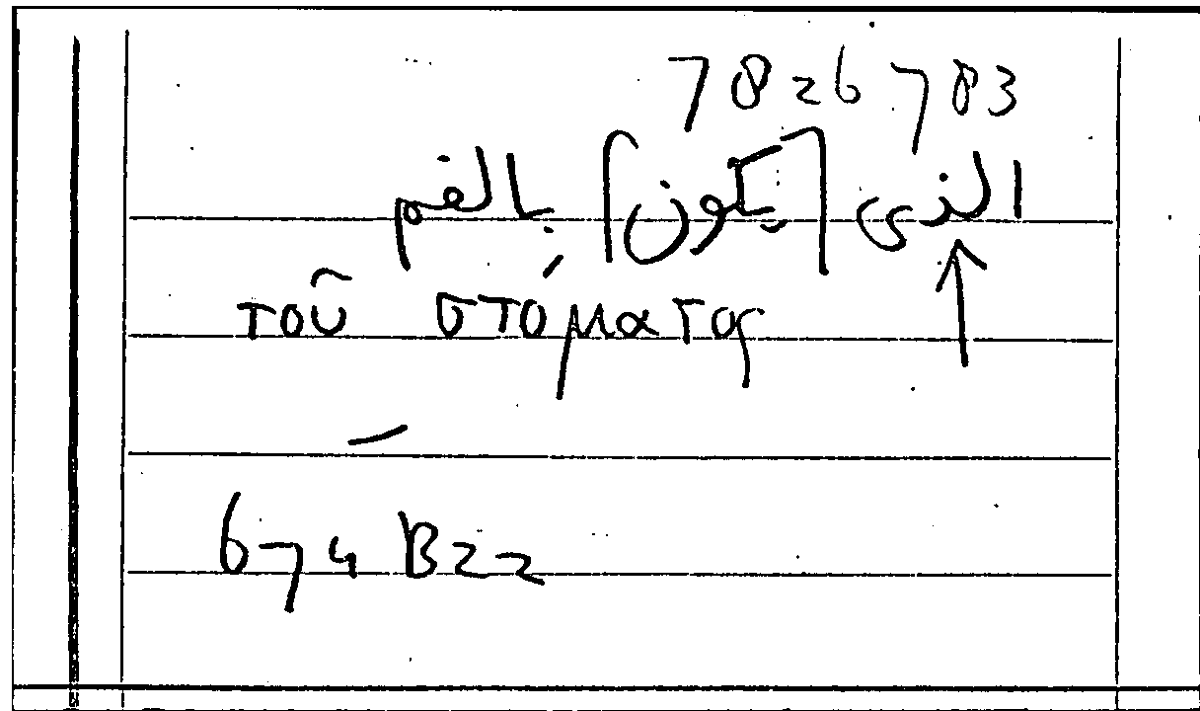 7826783
الذى [يكون] بالفم
↑
τοῦ στόματος
—
674 B22